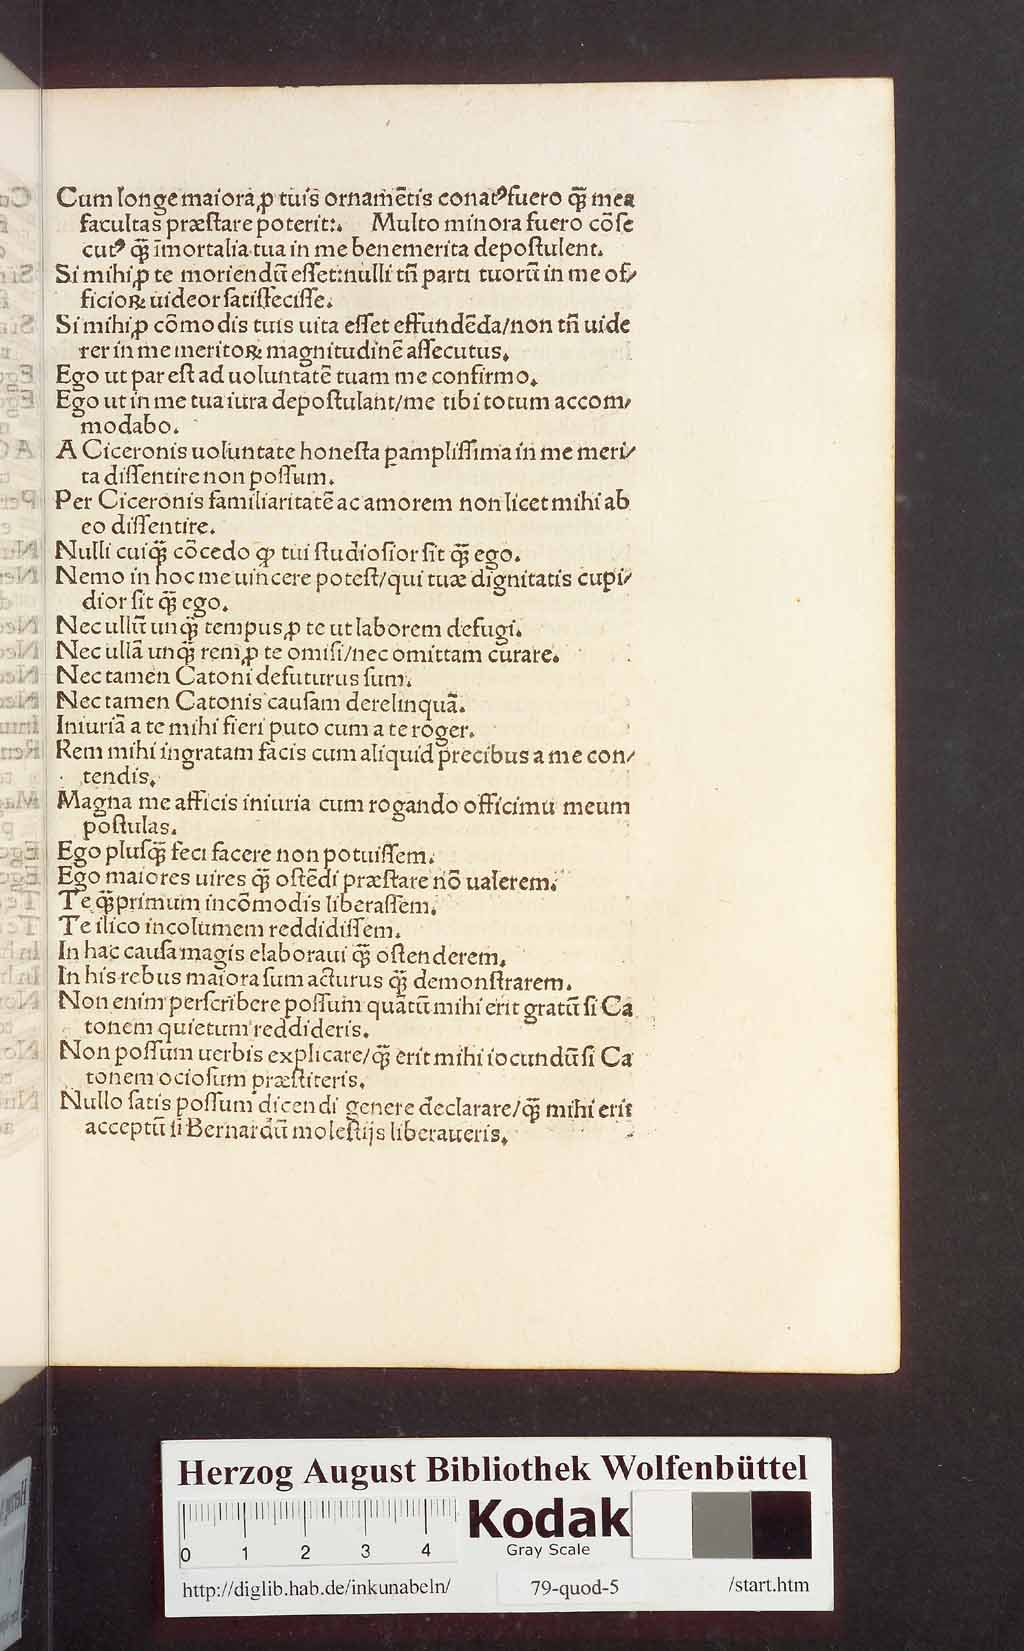 Cum longe maiora ꝓ tuis ornamētis conatꝰ fuero q̄ mea
facultas præſtare poterit:. Multo minora fuero cōſe
cutꝰ q̄ īmortalia tua in me benemerita depoſtulent.
Si mihi ꝓ te moriendū eſſet: nulli tn̄ parti tuorū in me of/
ficioꝝ uideor ſatiſfeciſſe.
Si mihi ꝓ cōmodis tuis uita eſſet effundēda/non tn̄ uide
rer in me meritoꝝ magnitudinē aſſecutus.
Ego ut par eſt ad uoluntatē tuam me confirmo.
Ego ut in me tua iura depoſtulant/me tibi totum accom/
modabo.
A Ciceronis uoluntate honeſta ꝑampliſſima in me meri/
ta diſſentire non poſſum.
Per Ciceronis familiaritatē ac amorem non licet mihi ab
eo diſſentire.
Nulli cuiq̄ cōcedo ꝙ tui ſtudioſior ſit q̄ ego.
Nemo in hoc me uincere poteſt/qui tuæ dignitatis cupi/
dior ſit q̄ ego.
Nec ullū unq̄ tempus ꝓ te ut laborem defugi.
Nec ullā unq̄ rem ꝓ te omiſi/nec omittam curare.
Nec tamen Catoni defuturus ſum.
Nec tamen Catonis cauſam derelinquā.
Iniuriā a te mihi fieri puto cum a te roger.
Rem mihi ingratam facis cum aliquid precibus a me con/
tendis.
Magna me afficis iniuria cum rogando officimu meum
poſtulas.
Ego pluſq̄ feci facere non potuiſſem.
Ego maiores uires q̄ oſtēdi præſtare nō ualerem.
Te q̄primum incōmodis liberaſſem.
Te ilico incolumem reddidiſſem.
In hac cauſa magis elaboraui q̄ oſtenderem.
In his rebus maiora ſum acturus q̄ demonſtrarem.
Non enim perſcribere poſſum quātū mihi erit gratū ſi Ca
tonem quietum reddideris.
Non poſſum uerbis explicare/q̄ erit mihi iocundū ſi Ca
tonem ocioſum præſtiteris.
Nullo ſatis poſſum dicendi genere declarare/q̄ mihi erit
acceptū ſi Bernardū moleſtijs liberaueris.
Herzog August Bibliothek Wolfenbüttel
0 1 2 3 4
Kodak
Gray Scale
http://diglib.hab.de/inkunabeln/ 79-quod-5 /start.htm